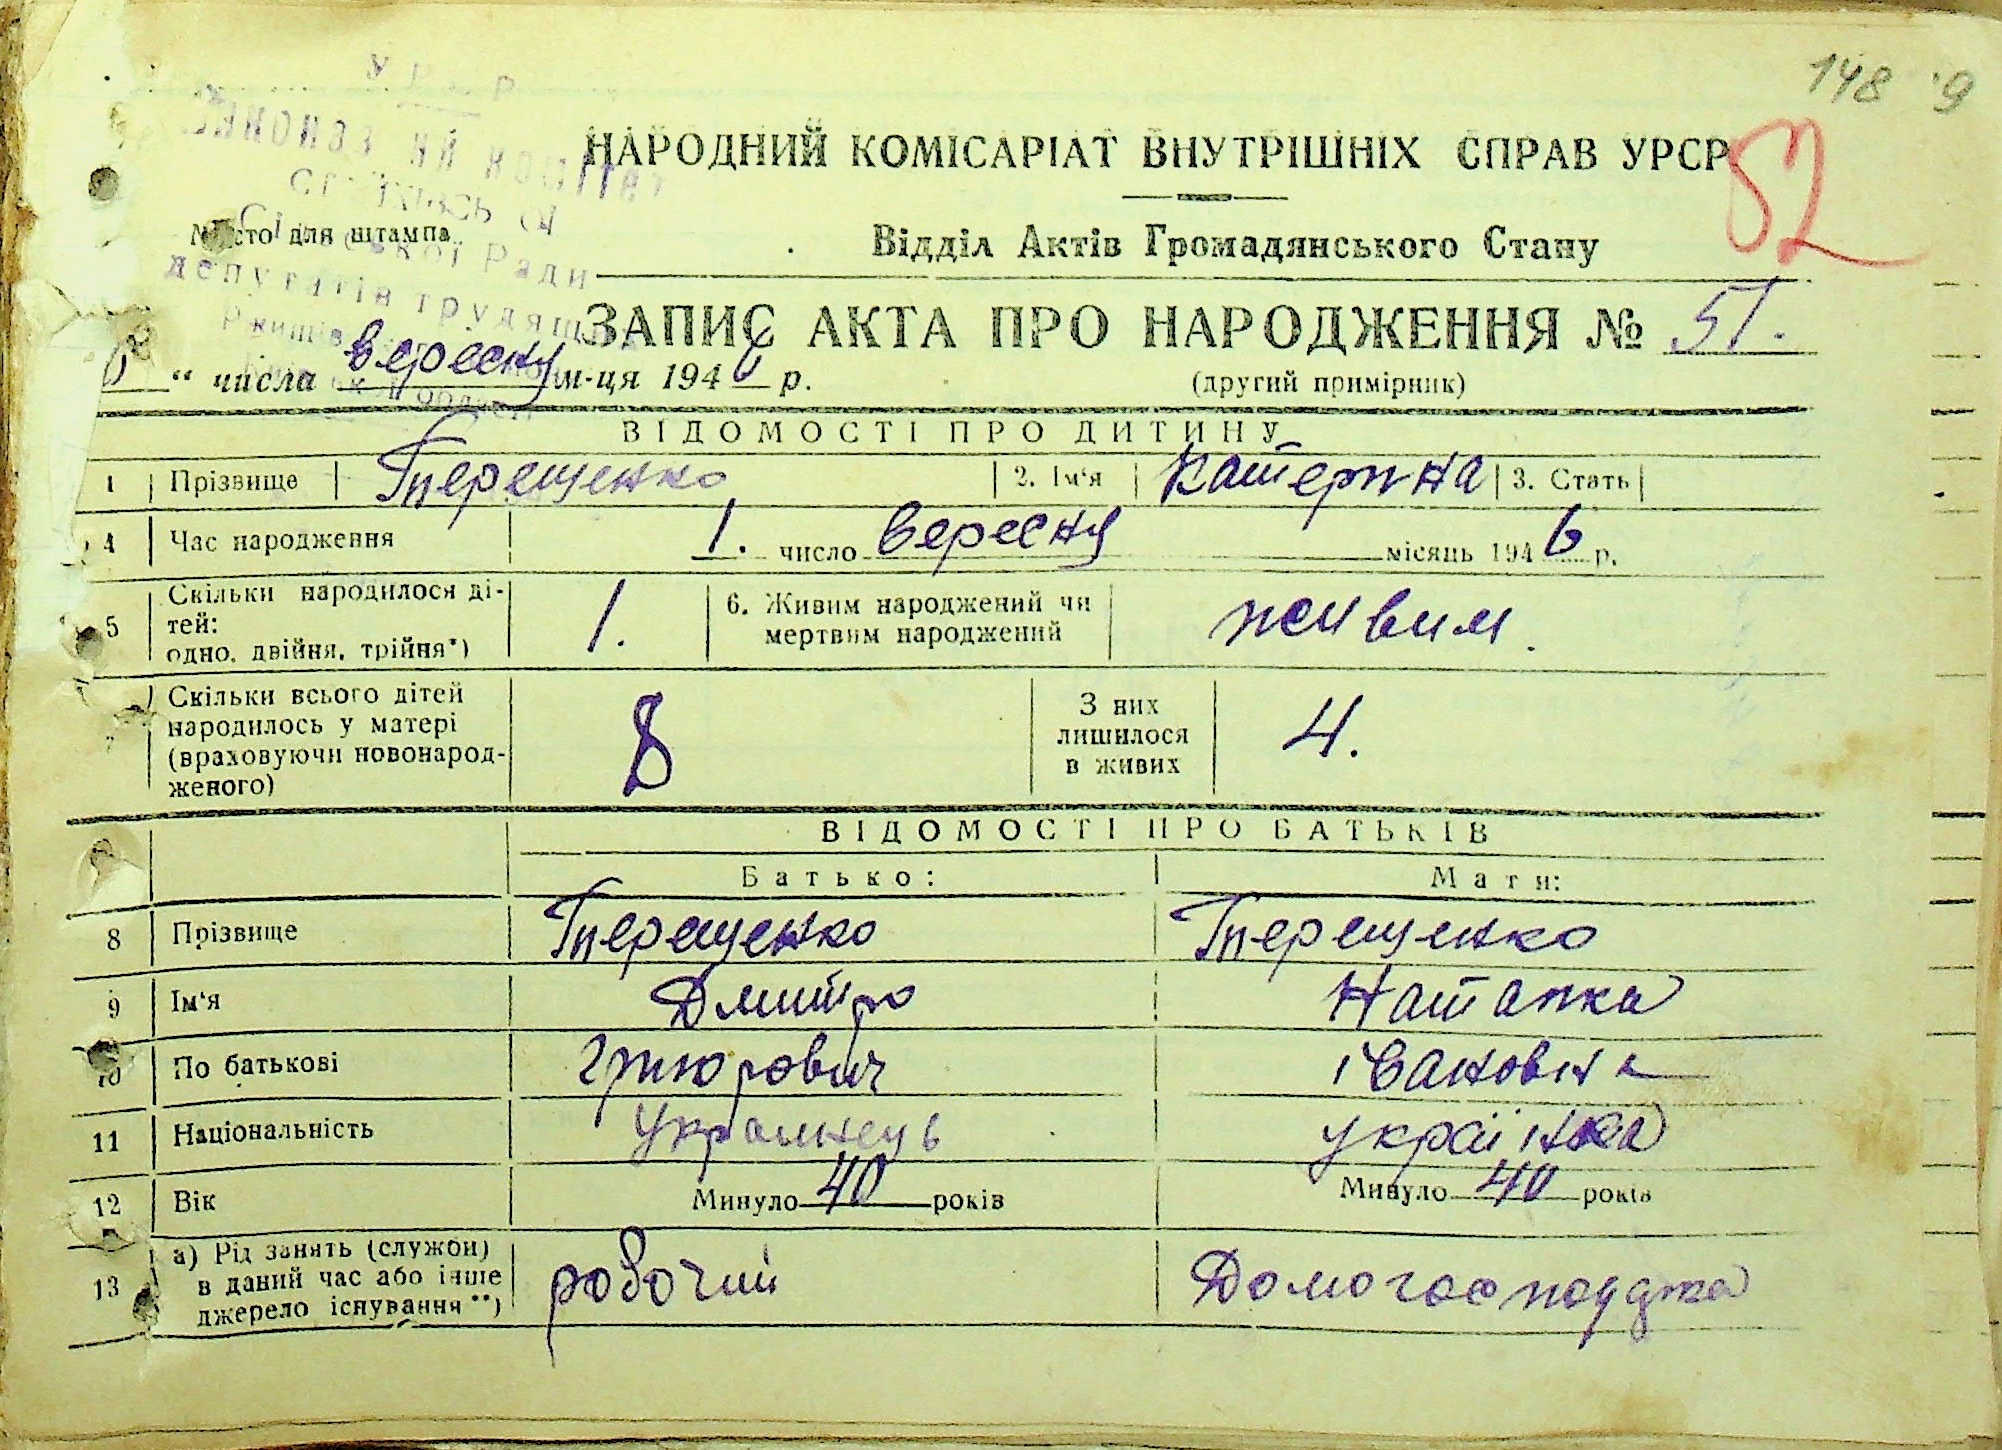 148 9
52
НАРОДНИЙ КОМІСАРІАТ ВНУТРІШНІХ СПРАВ УРСР
Місто для штампа
Відділ Актів Громадянського Стану
Ради
депутатів трудящих
ЗАПИС АКТА ПРО НАРОДЖЕННЯ № 51.
(другий примірник)
“ числа вересня м-ця 1946 р.
ВІДОМОСТІ ПРО ДИТИНУ
1 Прізвище Терещенко 2. Ім'я Катерина 3. Стать
4 Час народження 1. число вересня місяць 1946 р.
5 Скільки народилося ді-
тей:
одно, двійня, трійня*)
1.
6. Живим народжений чи
мертвим народжений
живим.
7 Скільки всього дітей
народилось у матері
(враховуючи новонарод-
женого)
8
З них
лишилося
в живих
4.
ВІДОМОСТІ ПРО БАТЬКІВ
Батько: Мати:
8 Прізвище Терещенко Терещенко
9 Ім'я Дмитро Наталка
10 По батькові Григорович Івановна
11 Національність українець українка
12 Вік Минуло 40 років Минуло 40 років
13 а) Рід занять (служби)
в даний час або інше
джерело існування**)
робочий